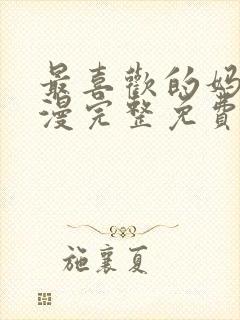 最喜歡的妈
漫完整免費
施襄夏